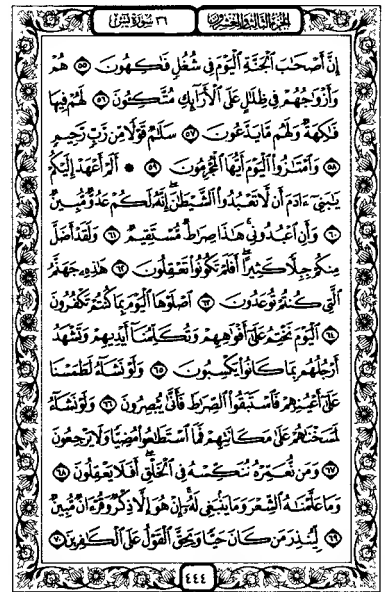 الجزء الثالث والعشرون ٣٦ سورة يس
إِنَّ أَصْحَابَ ٱلْجَنَّةِ ٱلْيَوْمَ فِى شُغُلٍ فَاكِهُونَ ٥٥ هُمْ
وَأَزْوَاجُهُمْ فِى ظِلَالٍ عَلَى ٱلْأَرَآئِكِ مُتَّكِـُٔونَ ٥٦ لَهُمْ فِيهَا
فَاكِهَةٌ وَلَهُم مَّا يَدَّعُونَ ٥٧ سَلَامٌ قَوْلًا مِّن رَّبٍّ رَّحِيمٍ
٥٨ وَٱمْتَازُوا۟ ٱلْيَوْمَ أَيُّهَا ٱلْمُجْرِمُونَ ٥٩ * أَلَمْ أَعْهَدْ إِلَيْكُمْ
يَابَنِىٓ ءَادَمَ أَن لَّا تَعْبُدُوا۟ ٱلشَّيْطَانَ إِنَّهُۥ لَكُمْ عَدُوٌّ مُّبِينٌ
٦٠ وَأَنِ ٱعْبُدُونِى هَاذَا صِرَاطٌ مُّسْتَقِيمٌ ٦١ وَلَقَدْ أَضَلَّ
مِنكُمْ جِبِلًّا كَثِيرًا أَفَلَمْ تَكُونُوا۟ تَعْقِلُونَ ٦٢ هَاذِهِۦ جَهَنَّمُ
ٱلَّتِى كُنتُمْ تُوعَدُونَ ٦٣ ٱصْلَوْهَا ٱلْيَوْمَ بِمَا كُنتُمْ تَكْفُرُونَ
٦٤ ٱلْيَوْمَ نَخْتِمُ عَلَىٰٓ أَفْوَاهِهِمْ وَتُكَلِّمُنَآ أَيْدِيهِمْ وَتَشْهَدُ
أَرْجُلُهُم بِمَا كَانُوا۟ يَكْسِبُونَ ٦٥ وَلَوْ نَشَآءُ لَطَمَسْنَا
عَلَىٰٓ أَعْيُنِهِمْ فَٱسْتَبَقُوا۟ ٱلصِّرَاطَ فَأَنَّىٰ يُبْصِرُونَ ٦٦ وَلَوْ نَشَآءُ
لَمَسَخْنَاهُمْ عَلَىٰ مَكَانَتِهِمْ فَمَا ٱسْتَطَاعُوا۟ مُضِيًّا وَلَا يَرْجِعُونَ
٦٧ وَمَن نُّعَمِّرْهُ نُنَكِّسْهُ فِى ٱلْخَلْقِ أَفَلَا يَعْقِلُونَ ٦٨
وَمَا عَلَّمْنَاهُ ٱلشِّعْرَ وَمَا يَنۢبَغِى لَهُۥٓ إِنْ هُوَ إِلَّا ذِكْرٌ وَقُرْءَانٌ مُّبِينٌ
٦٩ لِّيُنذِرَ مَن كَانَ حَيًّا وَيَحِقَّ ٱلْقَوْلُ عَلَى ٱلْكَافِرِينَ ٧٠
٤٤٤